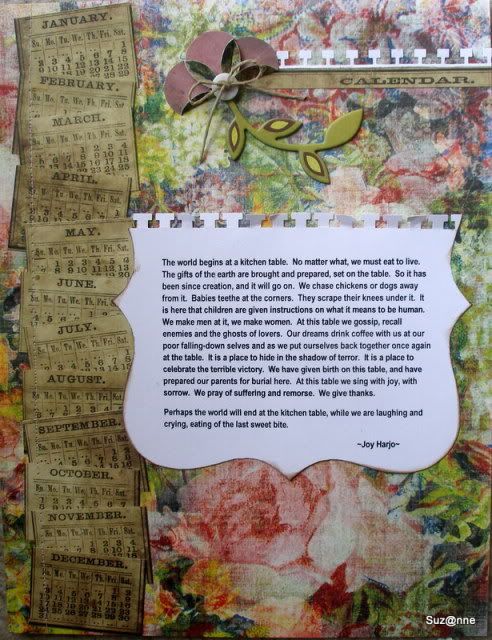 JANUARY.
Su. Mo. Tu. We. Th. Fri. Sat.
FEBRUARY.
MARCH.
Su. Mo. Tu. We. Th. Fri. Sat.
APRIL.
MAY.
Su. Mo. Tu. We. Th. Fri. Sat.
JUNE.
JULY.
AUGUST.
SEPTEMBER.
OCTOBER.
NOVEMBER.
DECEMBER.
CALENDAR.
The world begins at a kitchen table. No matter what, we must eat to live.
The gifts of the earth are brought and prepared, set on the table. So it has
been since creation, and it will go on. We chase chickens or dogs away
from it. Babies teethe at the corners. They scrape their knees under it. It
is here that children are given instructions on what it means to be human.
We make men at it, we make women. At this table we gossip, recall
enemies and the ghosts of lovers. Our dreams drink coffee with us at our
poor falling-down selves and as we put ourselves back together once again
at the table. It is a place to hide in the shadow of terror. It is a place to
celebrate the terrible victory. We have given birth on this table, and have
prepared our parents for burial here. At this table we sing with joy, with
sorrow. We pray of suffering and remorse. We give thanks.
Perhaps the world will end at the kitchen table, while we are laughing and
crying, eating of the last sweet bite.
~Joy Harjo~
Suz@nne